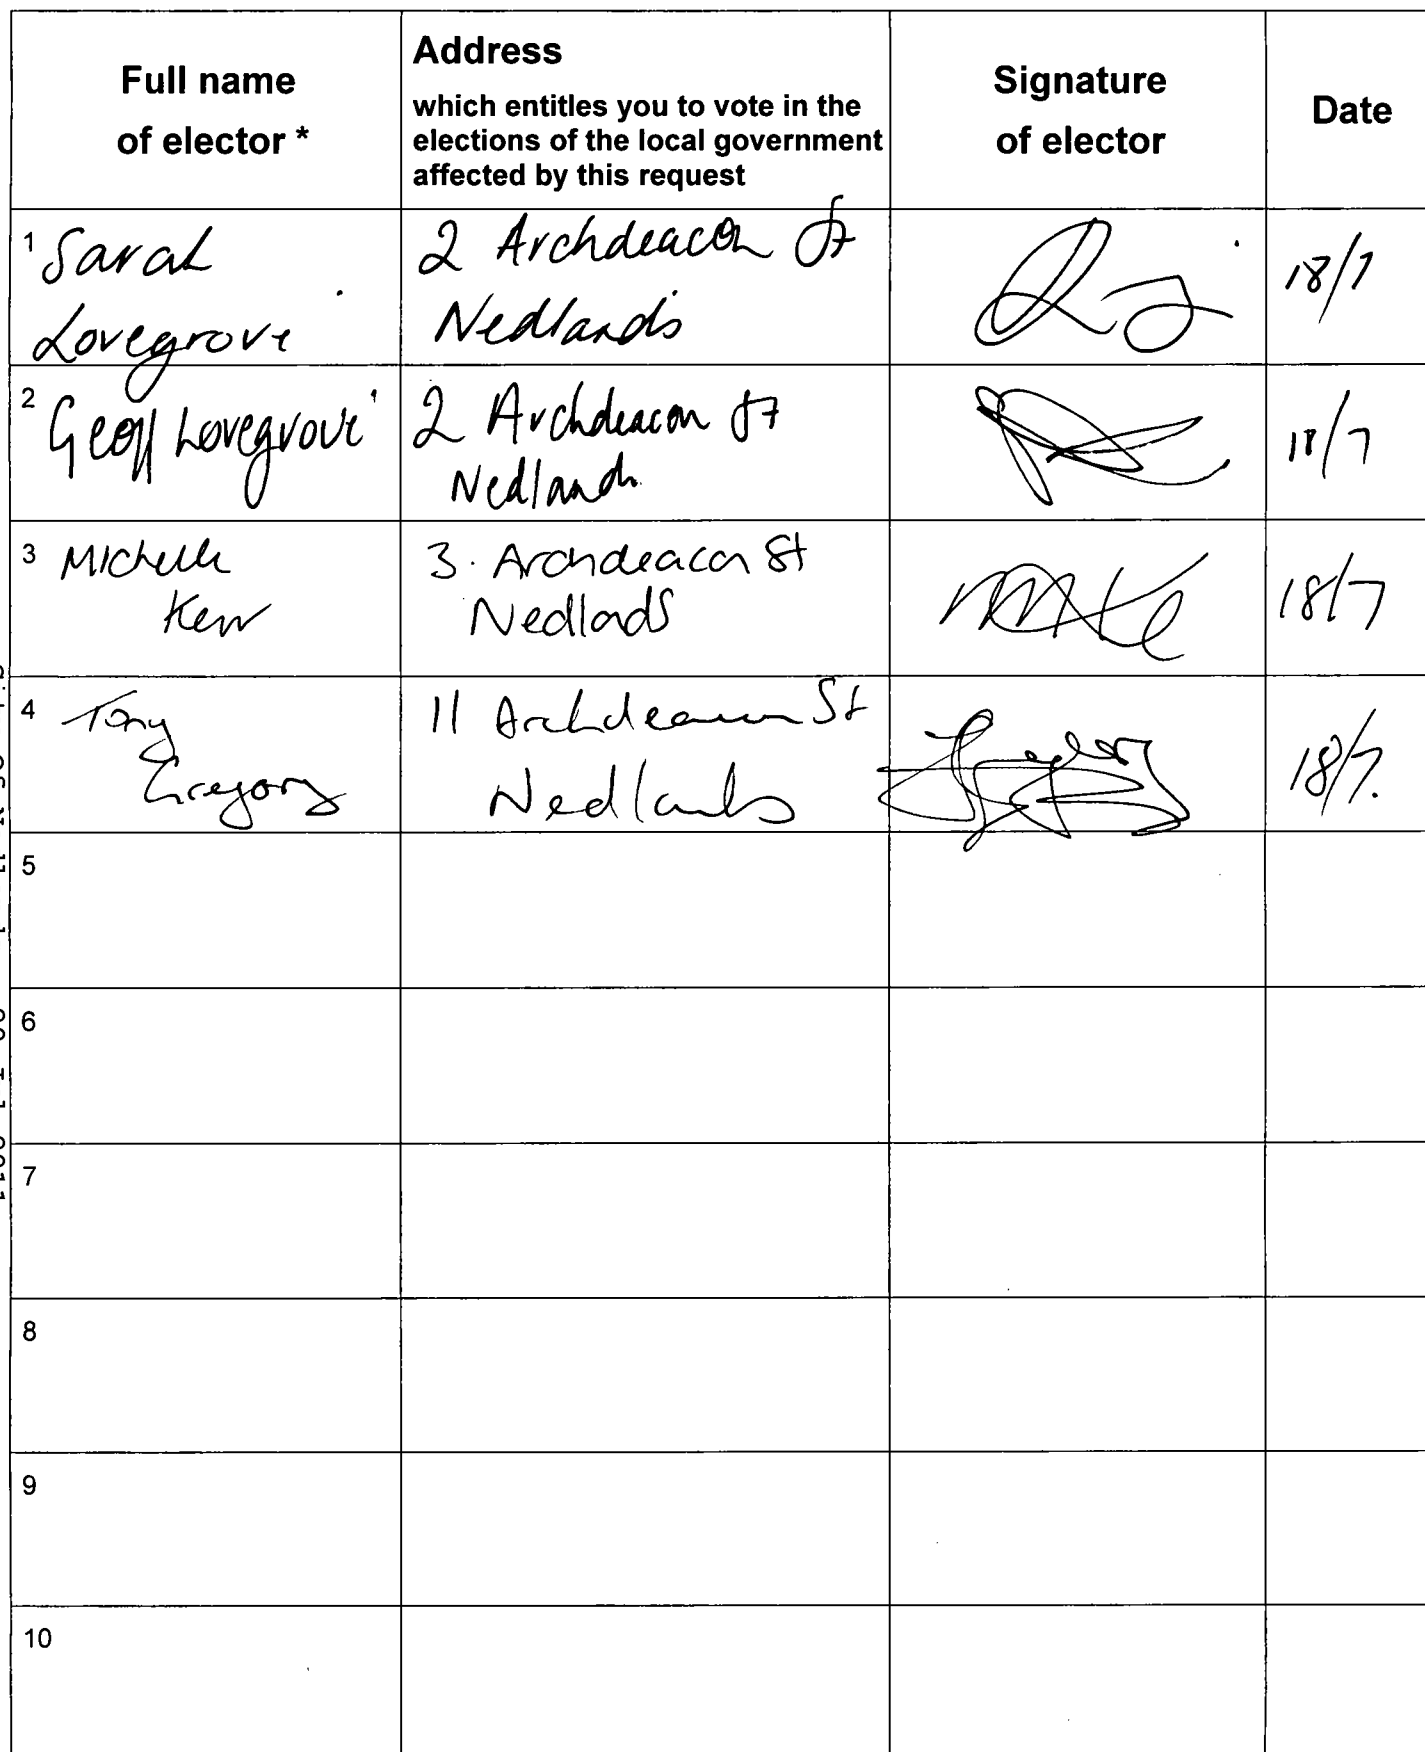 Full name
of elector *
Address
which entitles you to vote in the
elections of the local government
affected by this request
Signature
of elector
Date
1 Sarah
Lovegrove
2 Archdeacon St
Nedlands
18/7
2 Geoff Lovegrove
2 Archdeacon St
Nedlands
18/7
3 Michelle
Kerr
3. Archdeacon St
Nedlands
18/7
4 Tony
Gregory
11 Archdeacon St
Nedlands
18/7.
5
6
7
8
9
10